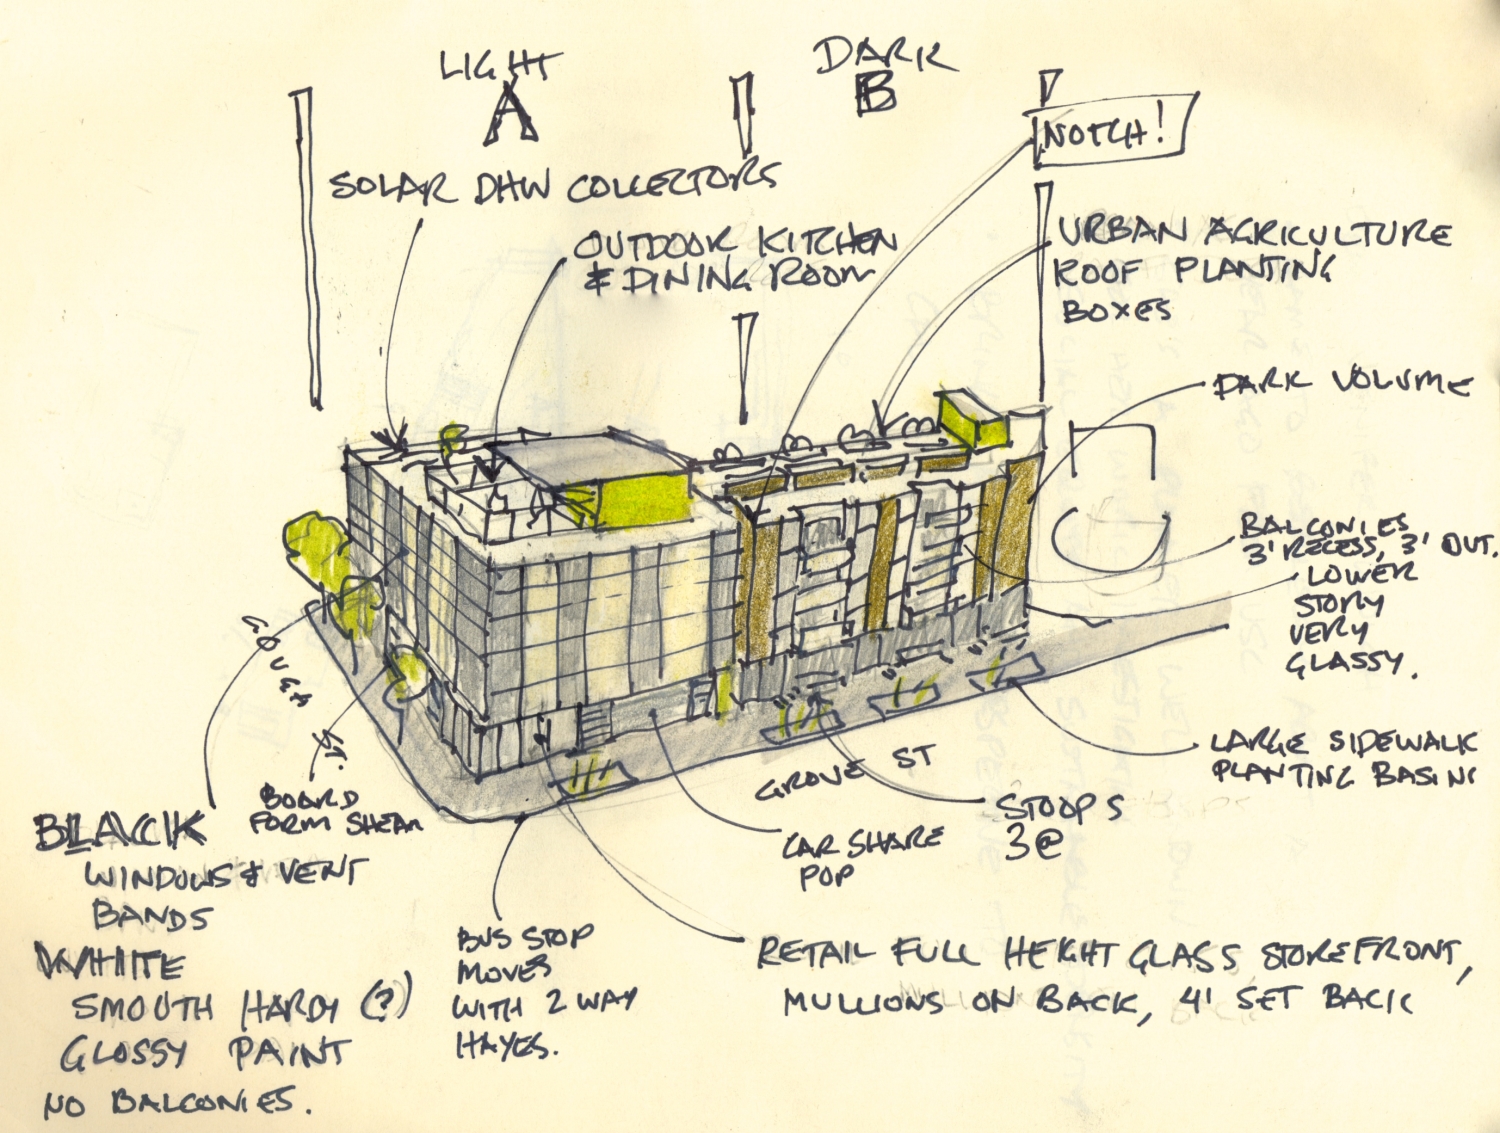 LIGHT
A
DARK
B
NOTCH!
SOLAR DHW COLLECTORS
OUTDOOR KITCHEN
& DINING ROOM
URBAN AGRICULTURE
ROOF PLANTING
BOXES
DARK VOLUME
BALCONIES
3' RECESS, 3' OUT.
LOWER
STORY
VERY
GLASSY.
LARGE SIDEWALK
PLANTING BASINS
GOUGH ST.
GROVE ST
STOOPS
3@
CAR SHARE
POP
BOARD
FORM SHEAR
BLACK
WINDOWS & VENT
BANDS
WHITE
SMOOTH HARDY (?)
GLOSSY PAINT
NO BALCONIES.
BUS STOP
MOVES
WITH 2 WAY
HAYES.
RETAIL FULL HEIGHT GLASS STOREFRONT,
MULLIONS ON BACK, 4' SET BACK